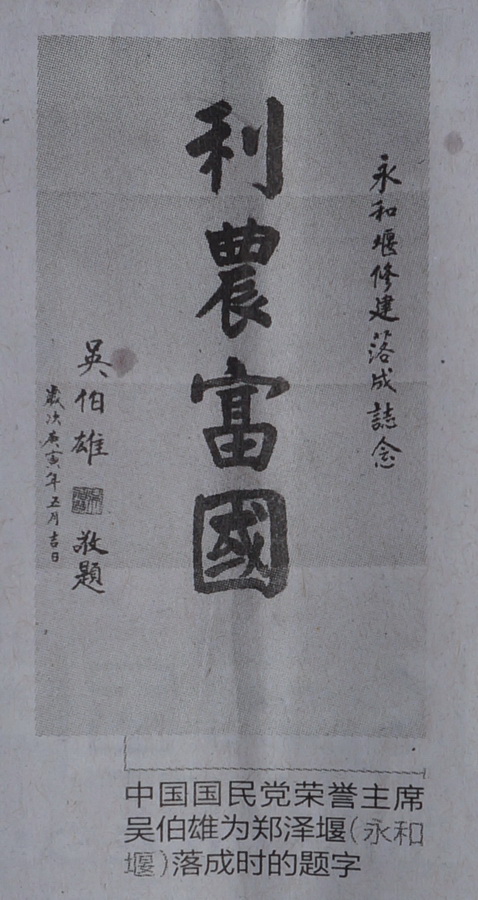 永和堰修建落成誌念
利農富國
吳伯雄 敬題
歲次庚寅年五月吉日
中国国民党荣誉主席
吴伯雄为郑泽堰(永和
堰)落成时的题字